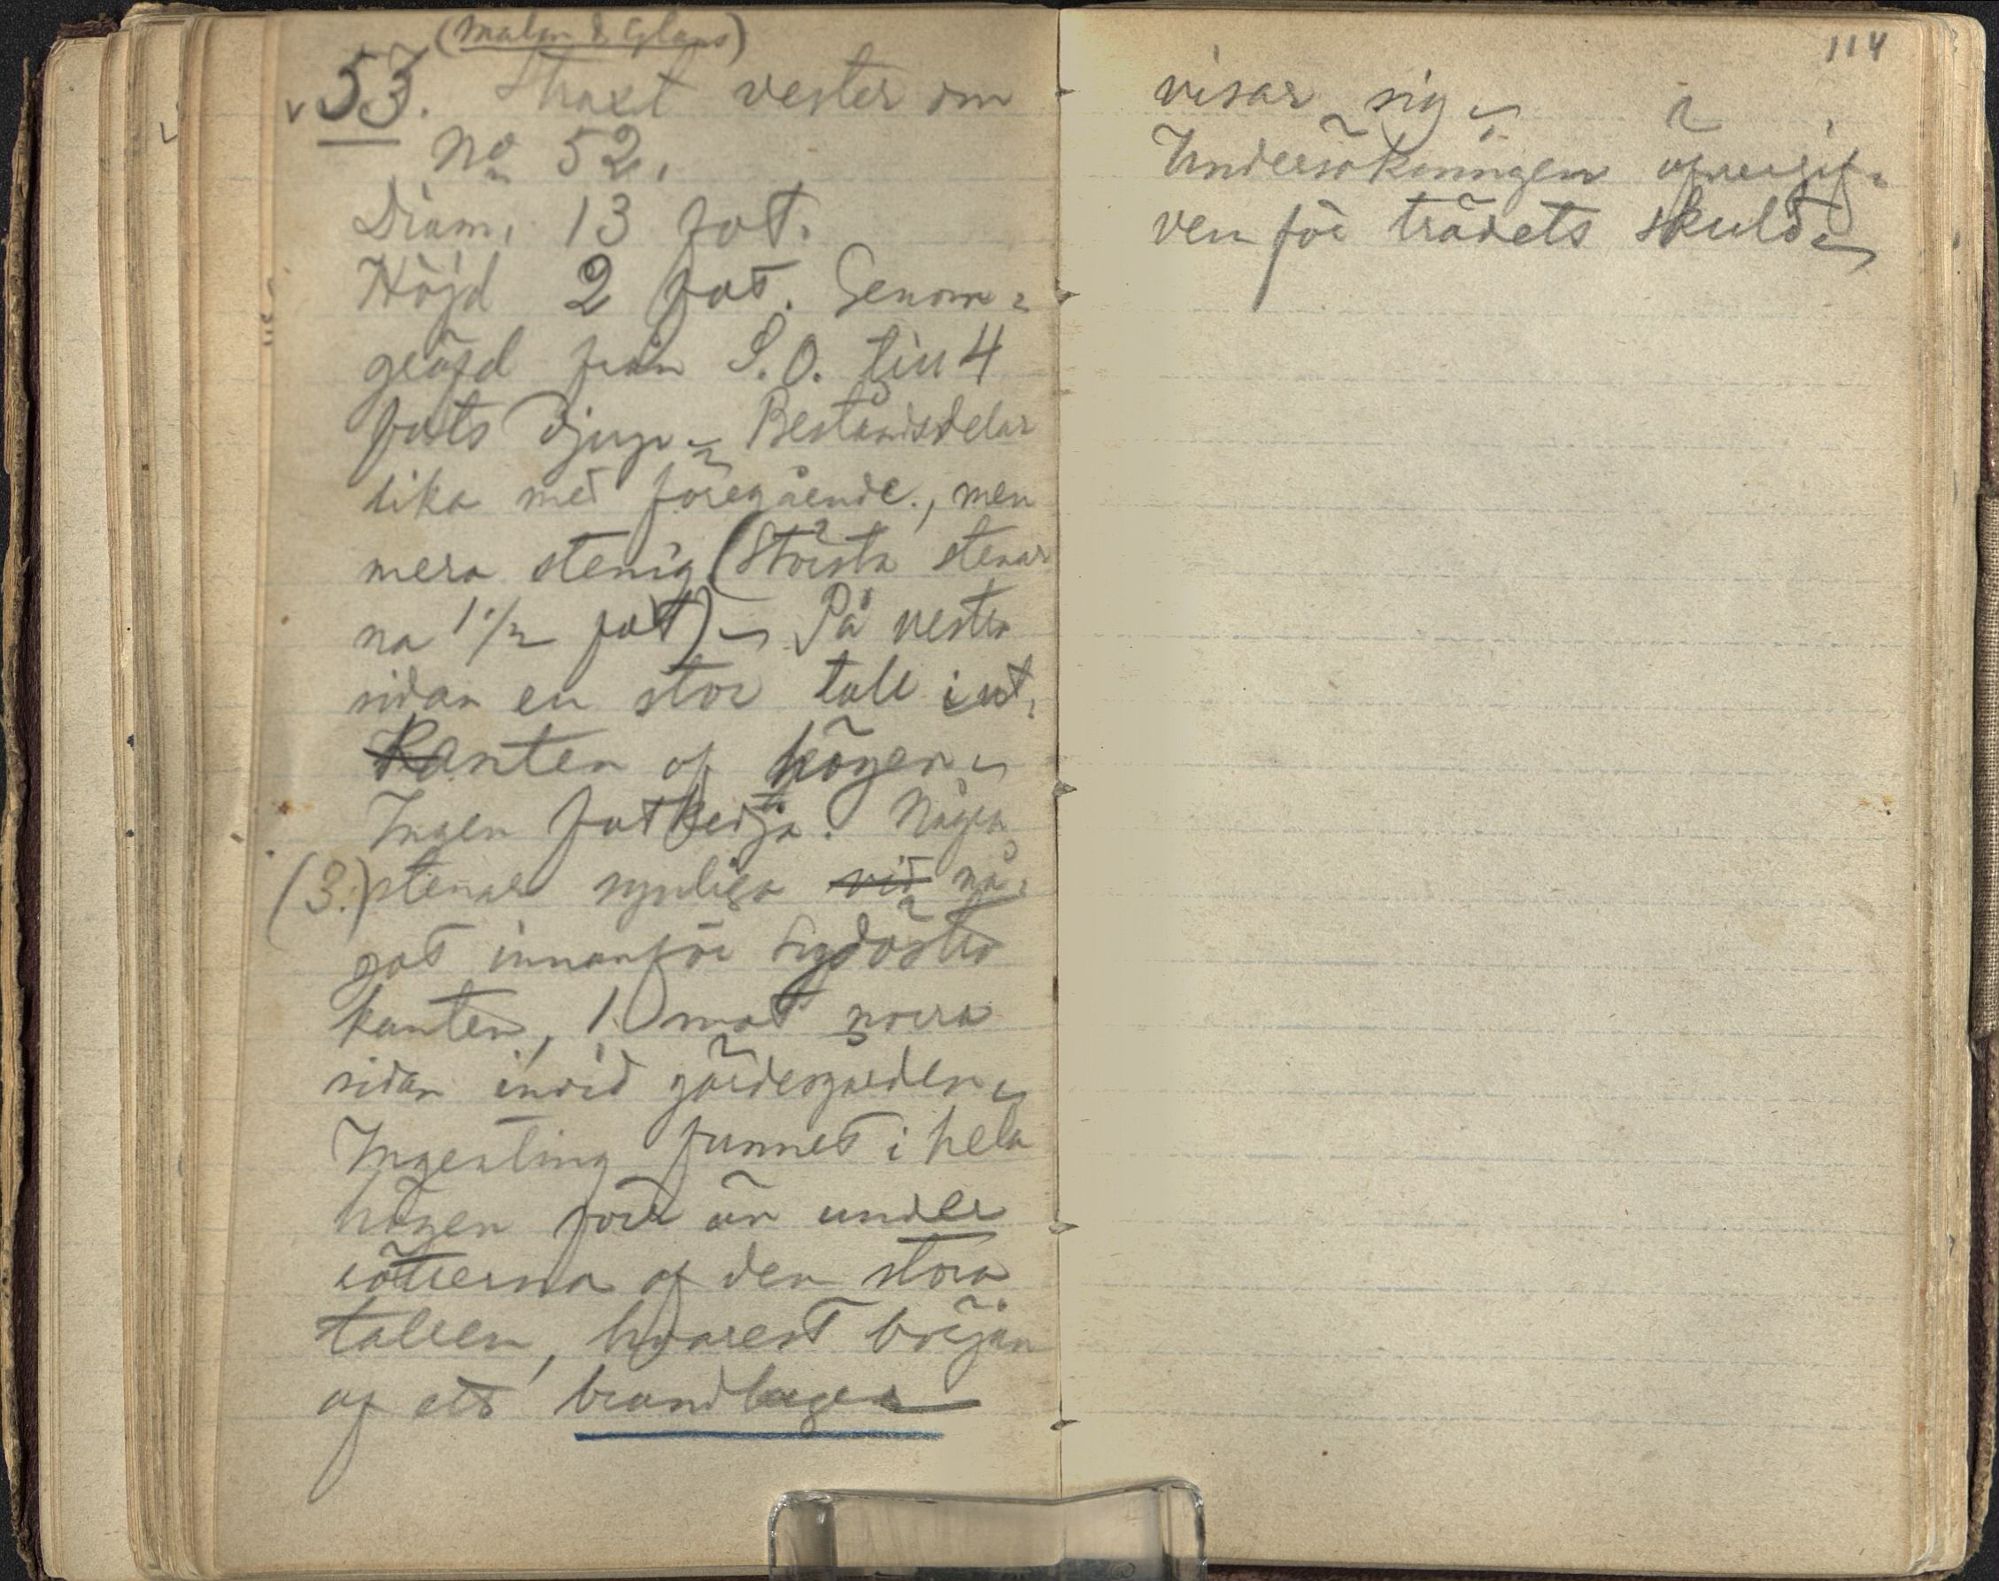 (Malm & Glans)
53. Straxt vester om
No 52.
Diam. 13 fot.
Höjd 2 fot. Genom-
gräfd från S.O. till 4
fots djup. Beståndsdelar
lika med föregående, men
mera stenig (Största stenar
na 1 1/2 fot). På vestra
sidan en stor tall i ut-
kanten af högen.
Ingen fotkedja. Några
(3.) stenar synliga vid nå-
got innanför sydöstra
kanten, 1 mot norra
sidan invid gärdesgården.
Ingenting funnet i hela
högen förr än under
rötterna af den stora
tallen, hvarest början
af ett brandlager
114
visar sig.
Undersökningen öfvergif-
ven för trädets skuld.